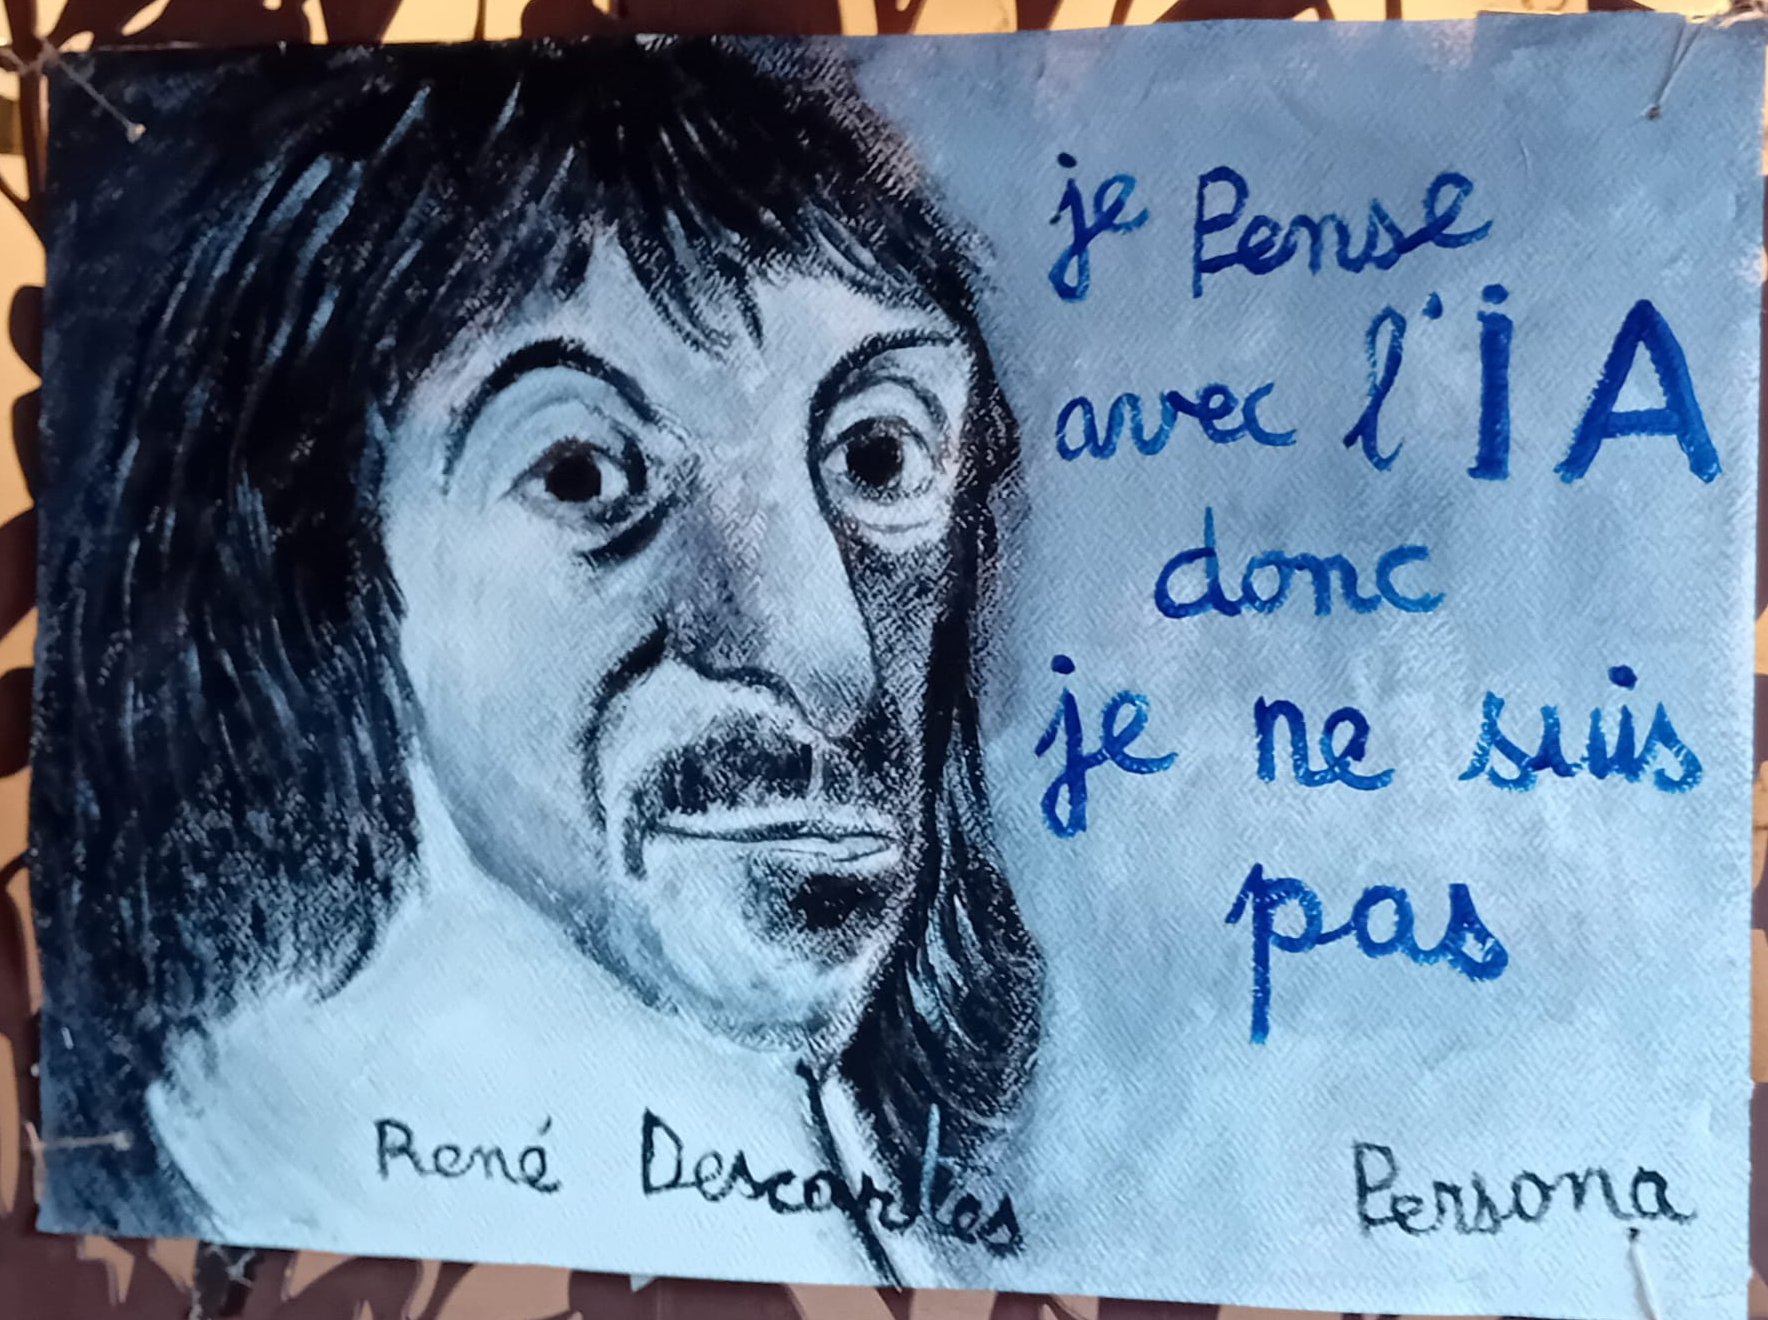 je Pense
avec l'iA
donc
je ne suis
pas
René Descartes
Persona